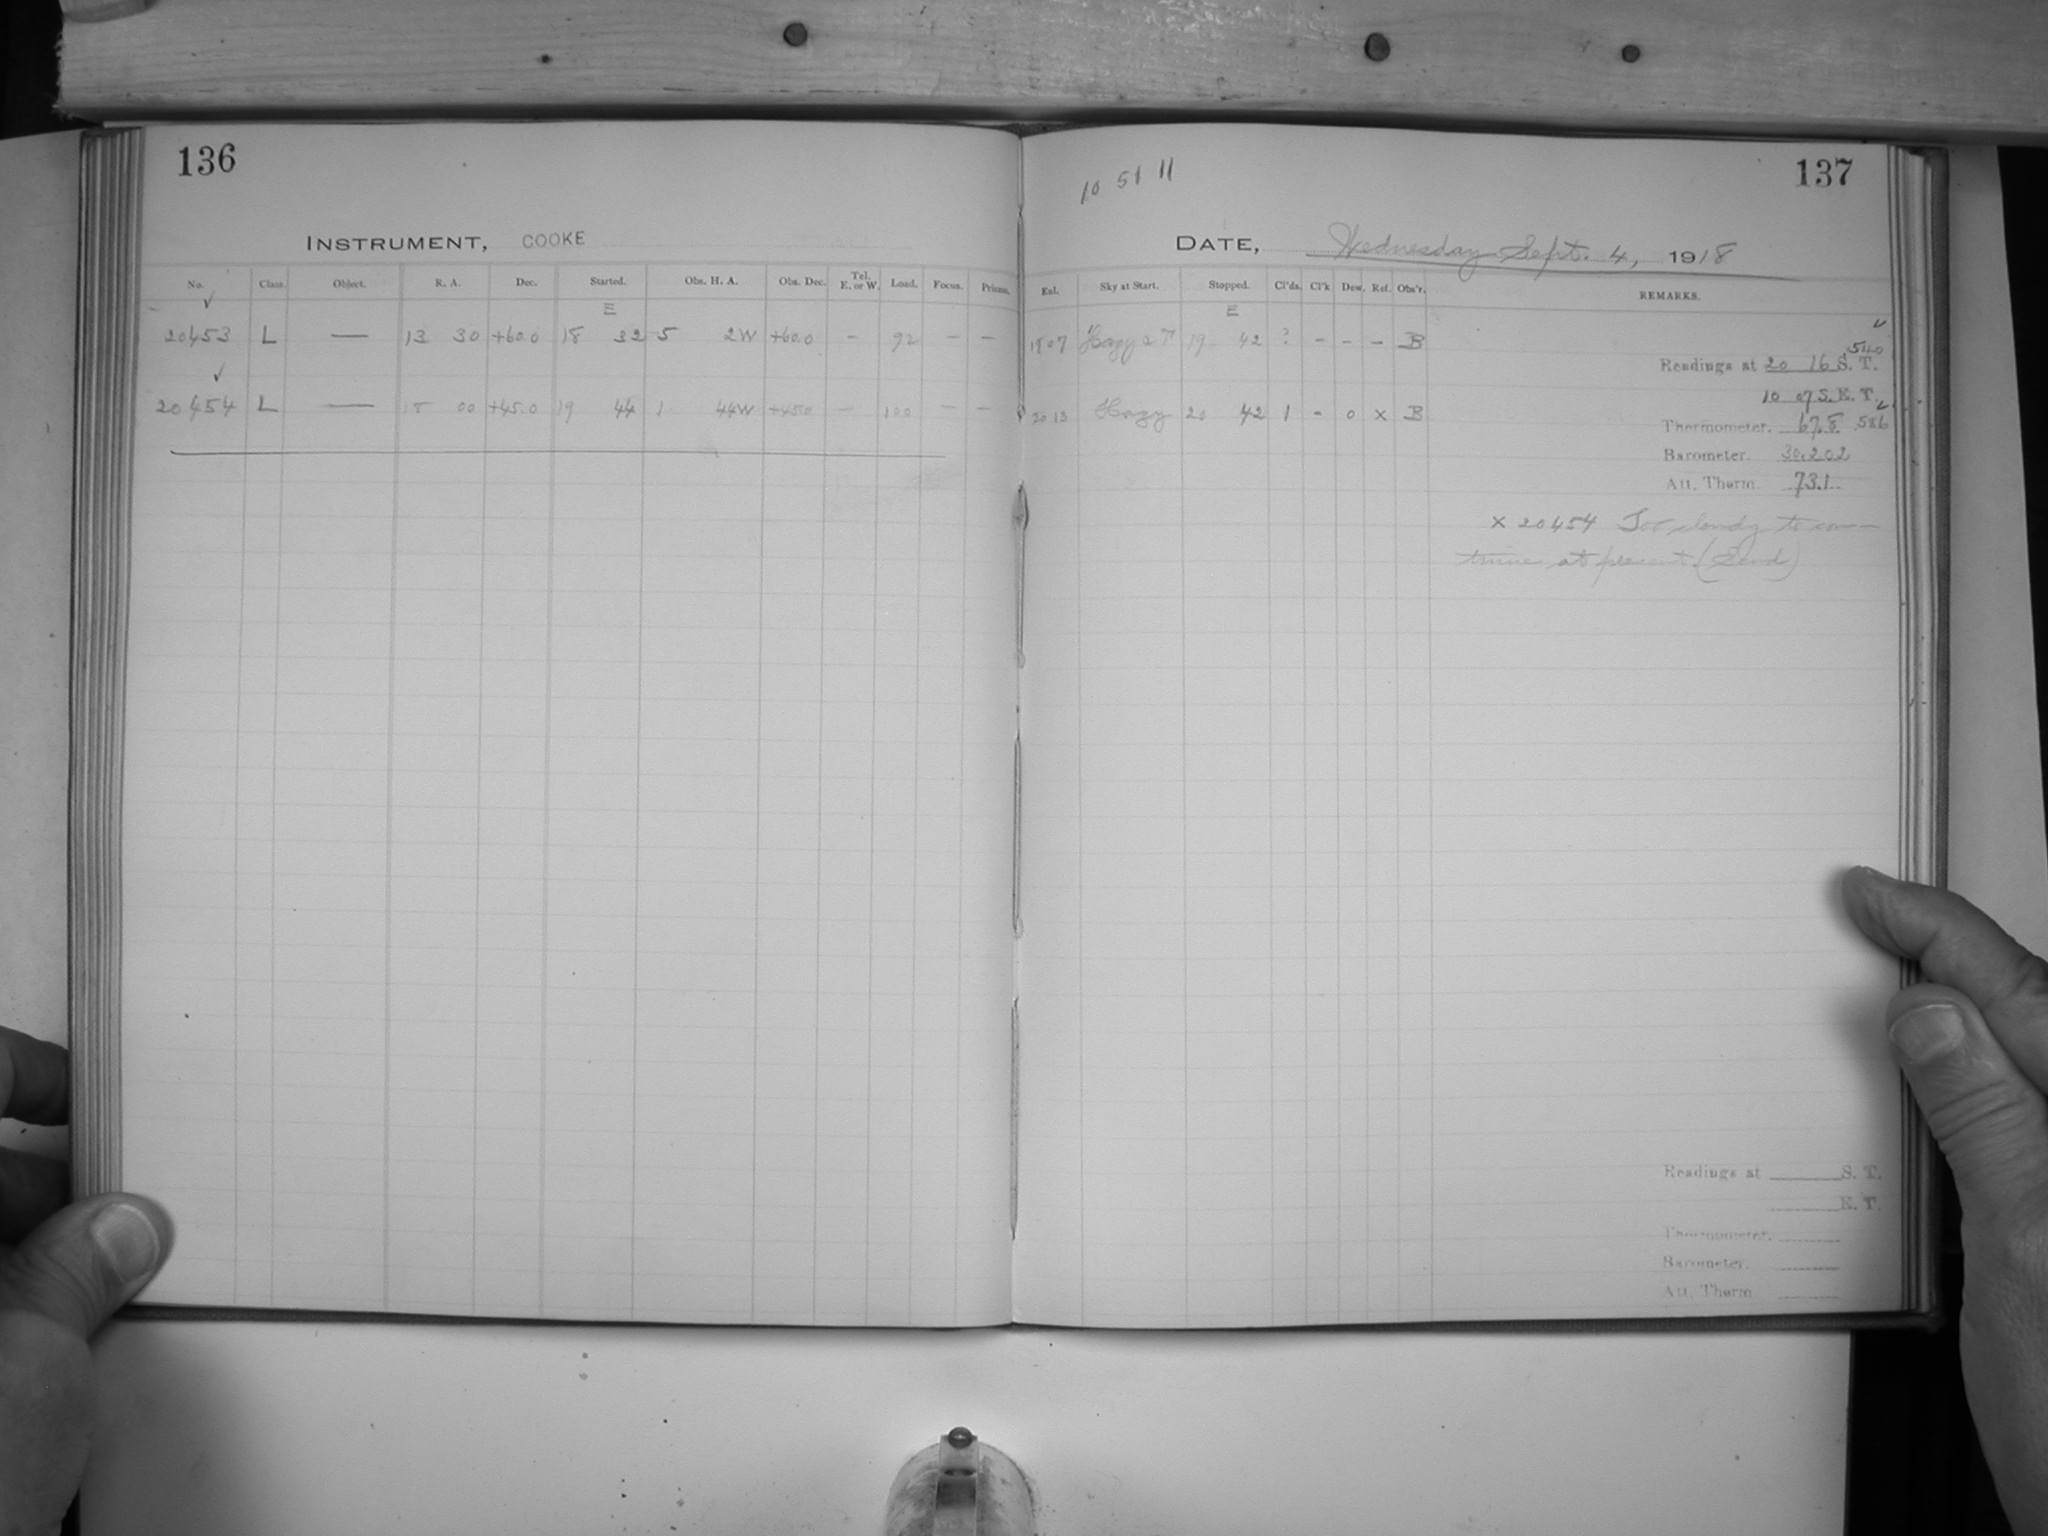 136
INSTRUMENT, COOKE
No. Class. Object. R. A. Dec. Started. Obs. H. A. Obs. Dec. Tel. E. or W. Load. Focus. Prisms.
✓ E
20453 L — 13 30 +60.0 18 32 5 2W +60.0 — 92 — —
✓
20454 L — 18 00 +45.0 19 44 1 44W +45.0 — 100 — —
10 51 11
137
DATE, Wednesday Sept. 4, 1918
Exl. Sky at Start. Stopped. Cl'ds. Cl'k Dew. Ref. Obs'r. REMARKS.
E
1907 Hazy 19 42 ? – – – B
540
Readings at 20 16 S. T.
10 07 S. E. T.
2013 Hazy 20 42 1 – 0 x B
Thermometer. 67.8 .586
Barometer. 30.202
Att. Therm. 73.1
x 20454 Too cloudy to con-
tinue at present. (End)
Readings at S. T.
E. T.
Thermometer.
Barometer.
Att. Therm.